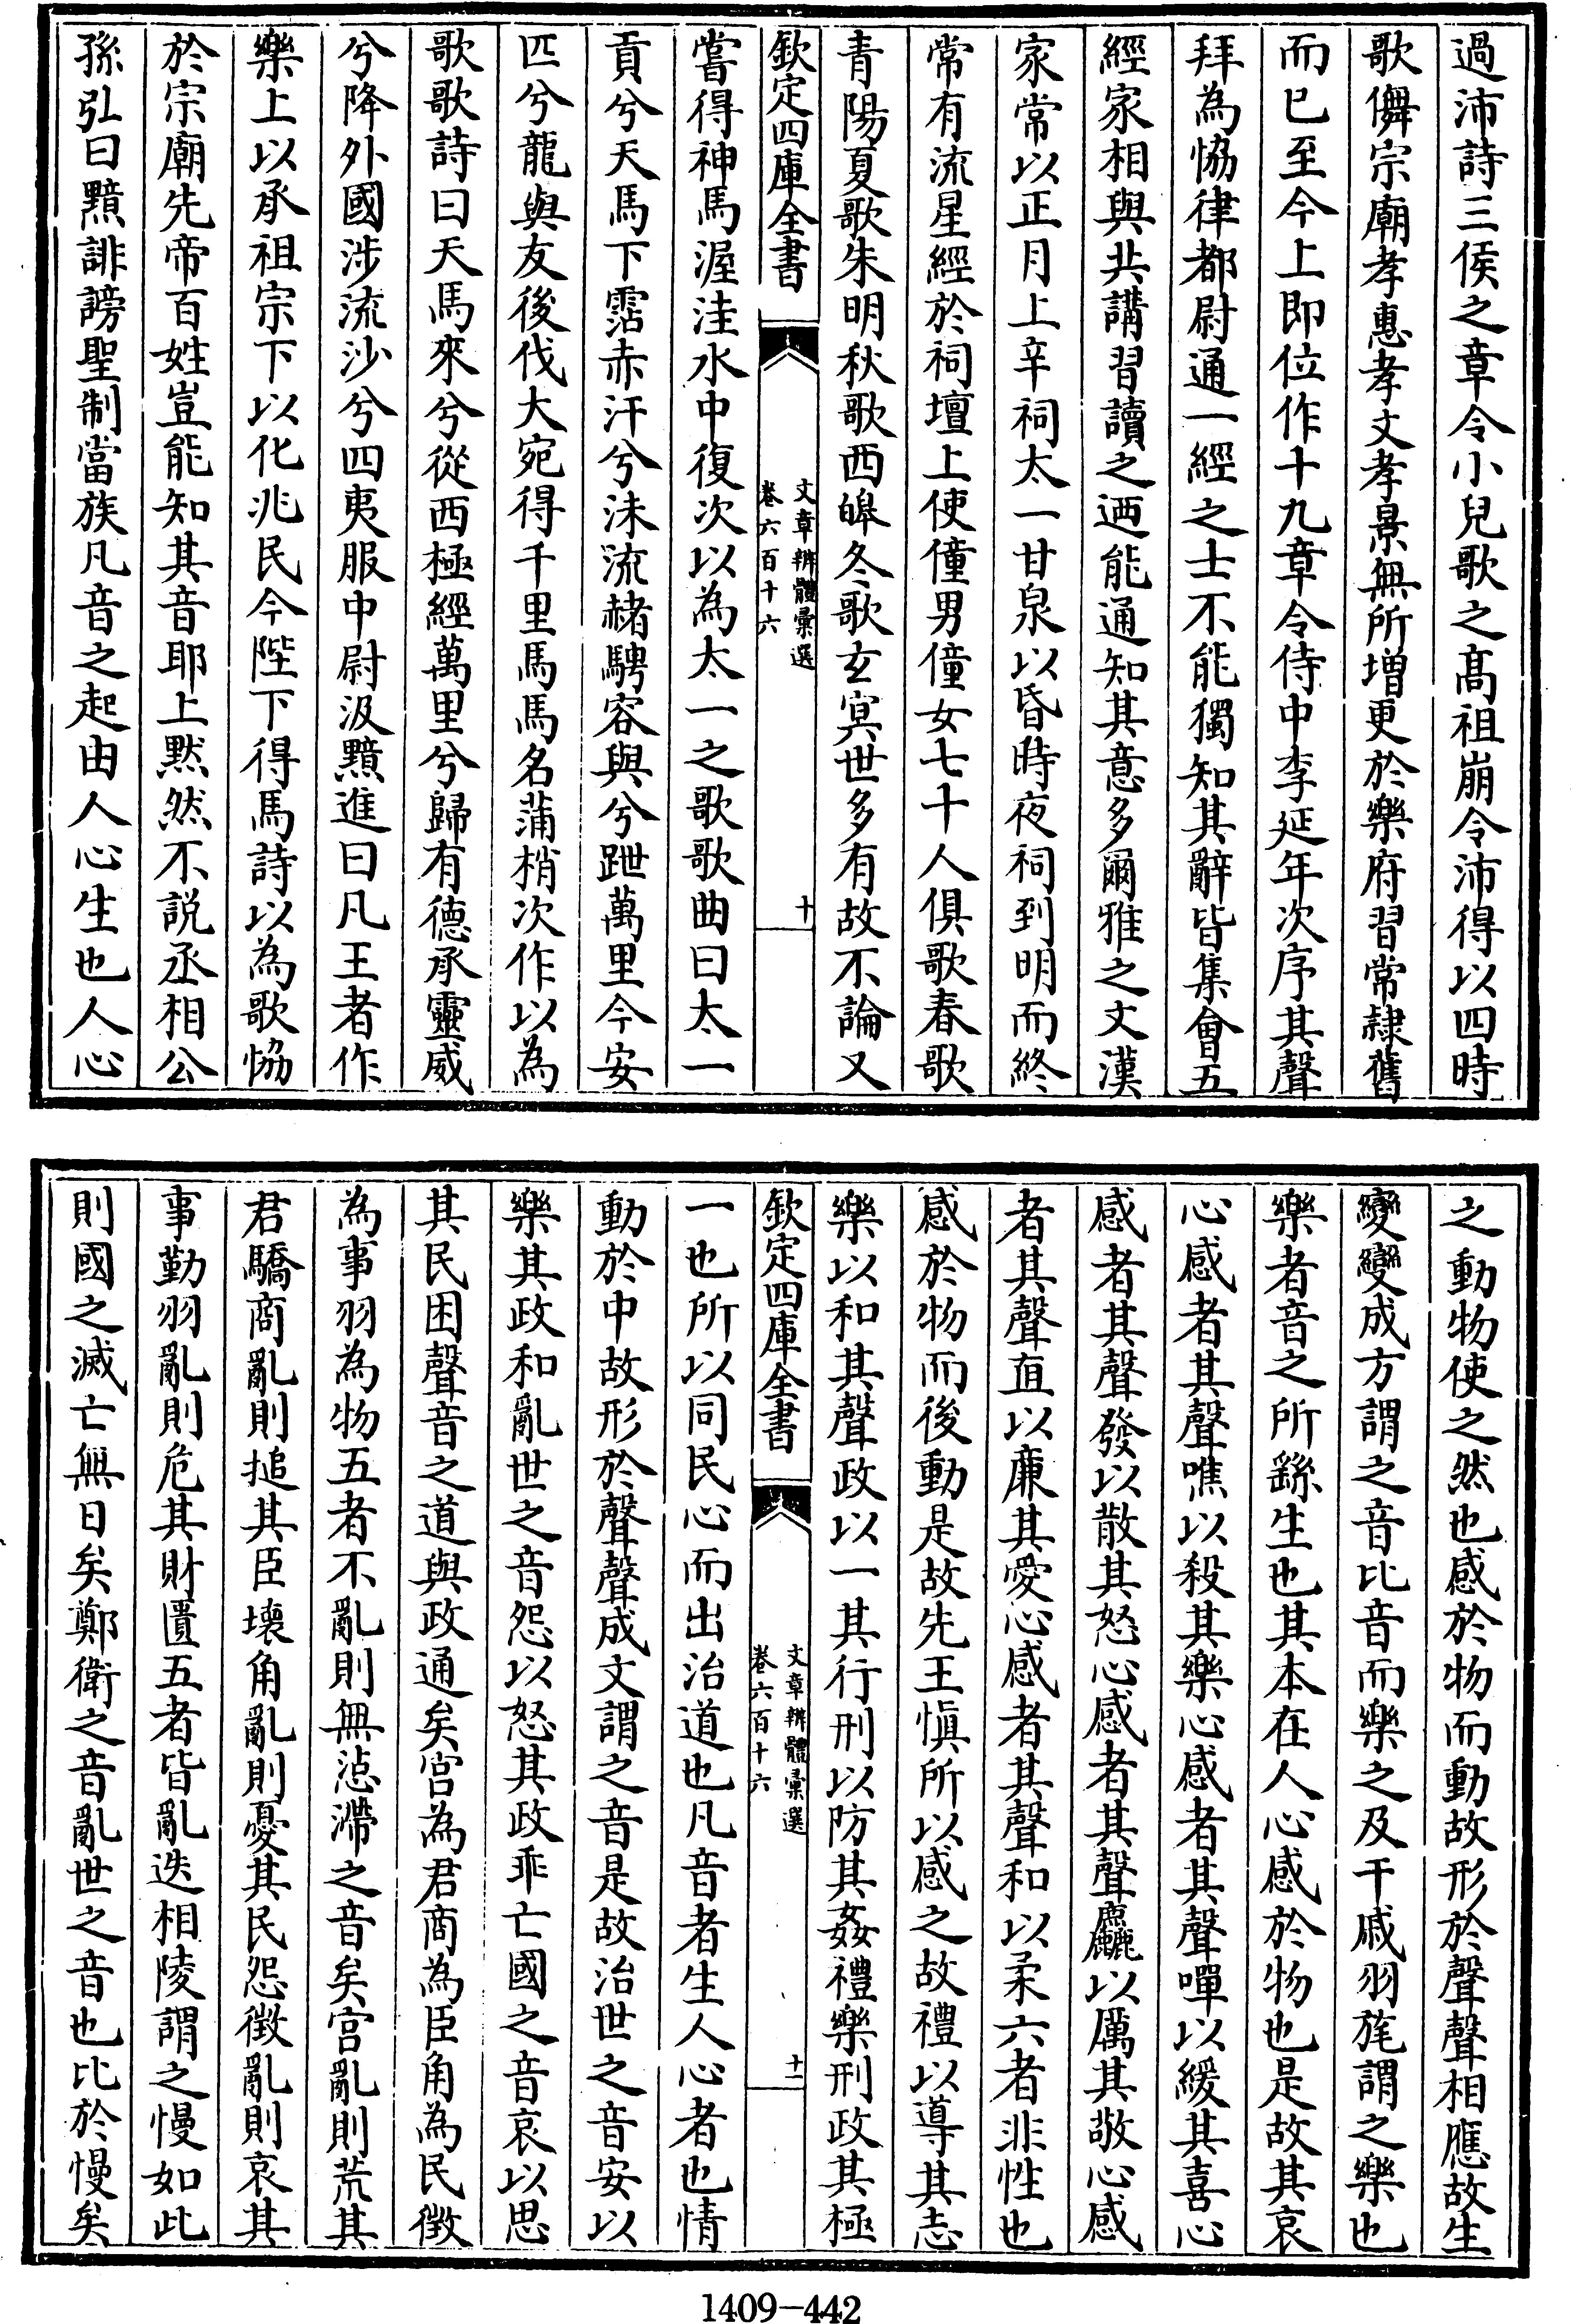 過沛詩三侯之章令小兒歌之髙祖崩令沛得以四時
歌儛宗廟孝惠孝文孝景無所增更於樂府習常隷舊
而已至今上即位作十九章令侍中李延年次序其聲
拜為恊律都尉通一經之士不能獨知其辭皆集會五
經家相與共講習讀之迺能通知其意多爾雅之文漢
家常以正月上辛祠太一甘泉以昏時夜祠到明而終
常有流星經於祠壇上使僮男僮女七十人俱歌春歌
青陽夏歌朱明秋歌西皥冬歌玄冥世多有故不論又
欽定四庫全書
文章辨體彙選
卷六百十六
十
嘗得神馬渥洼水中復次以為太一之歌歌曲曰太一
貢兮天馬下霑赤汗兮沬流赭騁容與兮跇萬里今安
匹兮龍與友後伐大宛得千里馬馬名蒲梢次作以為
歌歌詩曰天馬來兮從西極經萬里兮歸有德承靈威
兮降外國涉流沙兮四夷服中尉汲黯進曰凡王者作
樂上以承祖宗下以化兆民今陛下得馬詩以為歌恊
於宗廟先帝百姓豈能知其音耶上黙然不説丞相公
孫弘曰黯誹謗聖制當族凡音之起由人心生也人心
之動物使之然也感於物而動故形於聲聲相應故生
變變成方謂之音比音而樂之及干戚羽旄謂之樂也
樂者音之所繇生也其本在人心感於物也是故其哀
心感者其聲噍以殺其樂心感者其聲嘽以緩其喜心
感者其聲發以散其怒心感者其聲麤以厲其敬心感
者其聲直以亷其愛心感者其聲和以柔六者非性也
感於物而後動是故先王慎所以感之故禮以導其志
樂以和其聲政以一其行刑以防其姦禮樂刑政其極
欽定四庫全書
文章辨體彙選
卷六百十六
十一
一也所以同民心而出治道也凡音者生人心者也情
動於中故形於聲聲成文謂之音是故治世之音安以
樂其政和亂世之音怨以怒其政乖亡國之音哀以思
其民困聲音之道與政通矣宫為君商為臣角為民徵
為事羽為物五者不亂則無惉滯之音矣宫亂則荒其
君驕商亂則搥其臣壊角亂則憂其民怨徵亂則哀其
事勤羽亂則危其財匱五者皆亂迭相陵謂之慢如此
則國之滅亡無日矣鄭衛之音亂世之音也比於慢矣
1409-442